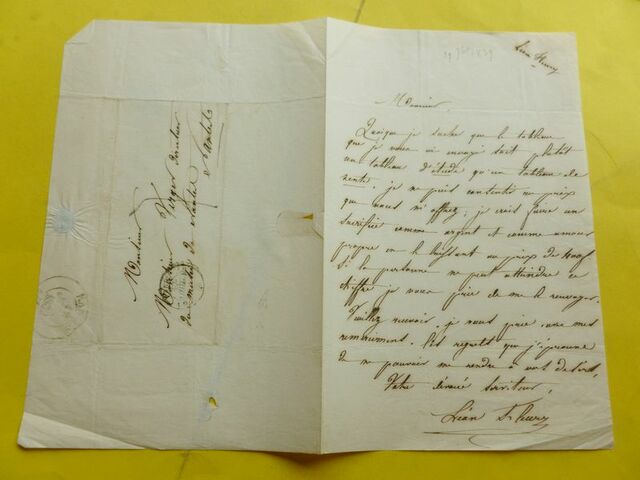 Léon Fleury
Monsieur,
Quoique je sache que le tableau
que je vous ai envoyé soit plutôt
un tableau d'étude qu'un tableau de
vente, je ne puis consentir au prix
que vous m'offrez, je crois faire un
sacrifice comme argent et comme amour
propre en le laissant au prix de
Si la personne ne peut atteindre ce
chiffre je vous prie de me le renvoyer.
Veuillez recevoir, je vous prie, avec mes
remerciements. les regrets que j'éprouve
de ne pouvoir me rendre à vos
Votre dévoué serviteur,
Léon Fleury
Monsieur
Monsieur Verger
du musée de Nantes